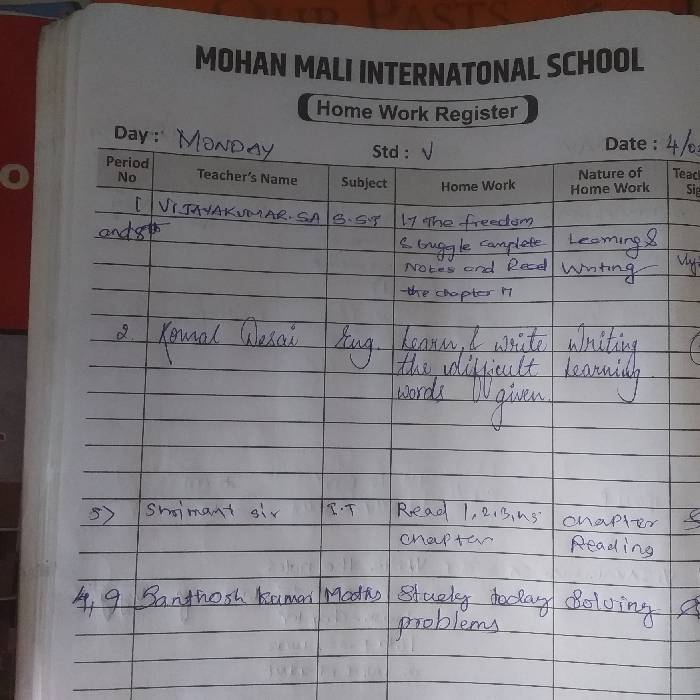 OUR PASTS
MOHAN MALI INTERNATONAL SCHOOL
Home Work Register
Day : MONDAY Std : V Date : 4/0
Period No Teacher's Name Subject Home Work Nature of Home Work Teac Sig
1 VIJAYAKUMAR.SA S.ST 17 The freedom
and 8th Struggle complete Learning &
Notes and Read Writing
the chapter 17
2. Komal Desai Eng. Learn & write Writing
the difficult learning
words given.
5) Shrimant sir I.T Read 1,2,3,4,5 chapter
chapter Reading
4, 9 Santhosh Kumar Maths Study today Solving
problems